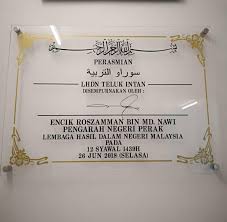 بسم الله الرحمن الرحيم
PERASMIAN
سوراو التربية
LHDN TELUK INTAN
DISEMPURNAKAN OLEH :
ENCIK ROSZAMMAN BIN MD. NAWI
PENGARAH NEGERI PERAK
LEMBAGA HASIL DALAM NEGERI MALAYSIA
PADA
12 SYAWAL 1439H
26 JUN 2018 (SELASA)